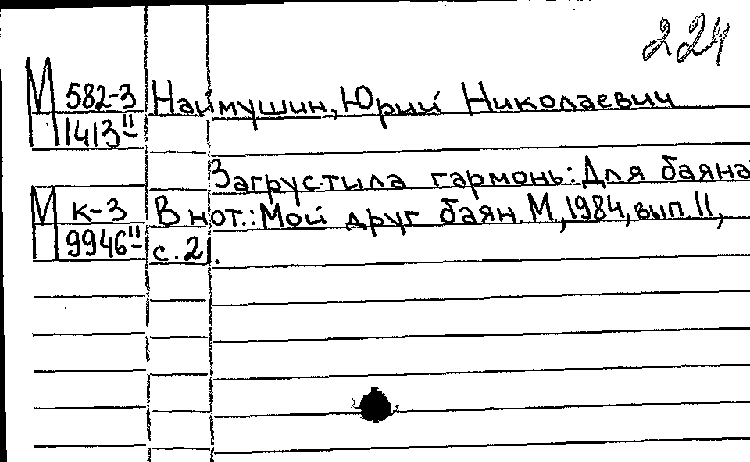 224
М 582-3 Наймушин, Юрий Николаевич
1413 II
Загрустила гармонь: Для баяна
М К-3 В нот.: Мой друг баян. М., 1984, вып. 11,
9946 II с. 21.